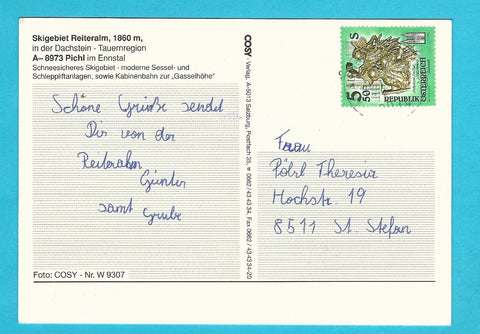 Skigebiet Reiteralm, 1860 m,
in der Dachstein - Tauernregion
A– 8973 Pichl im Ennstal
Schneesicheres Skigebiet - moderne Sessel- und
Schleppliftanlagen, sowie Kabinenbahn zur „Gasselhöhe"
Schöne Grüße sendet
Dir von der
Reiteralm
Günter
samt Grube
Foto: COSY - Nr. W 9307
COSY - Verlag, A-5013 Salzburg, Postfach 35, ☎ 0662 / 43 43 34, Fax 0662 / 43 43 34-20
5 50 S
REPUBLIK
ÖSTERREICH
Frau
Pölzl Theresia
Hochstr. 19
8511 St. Stefan